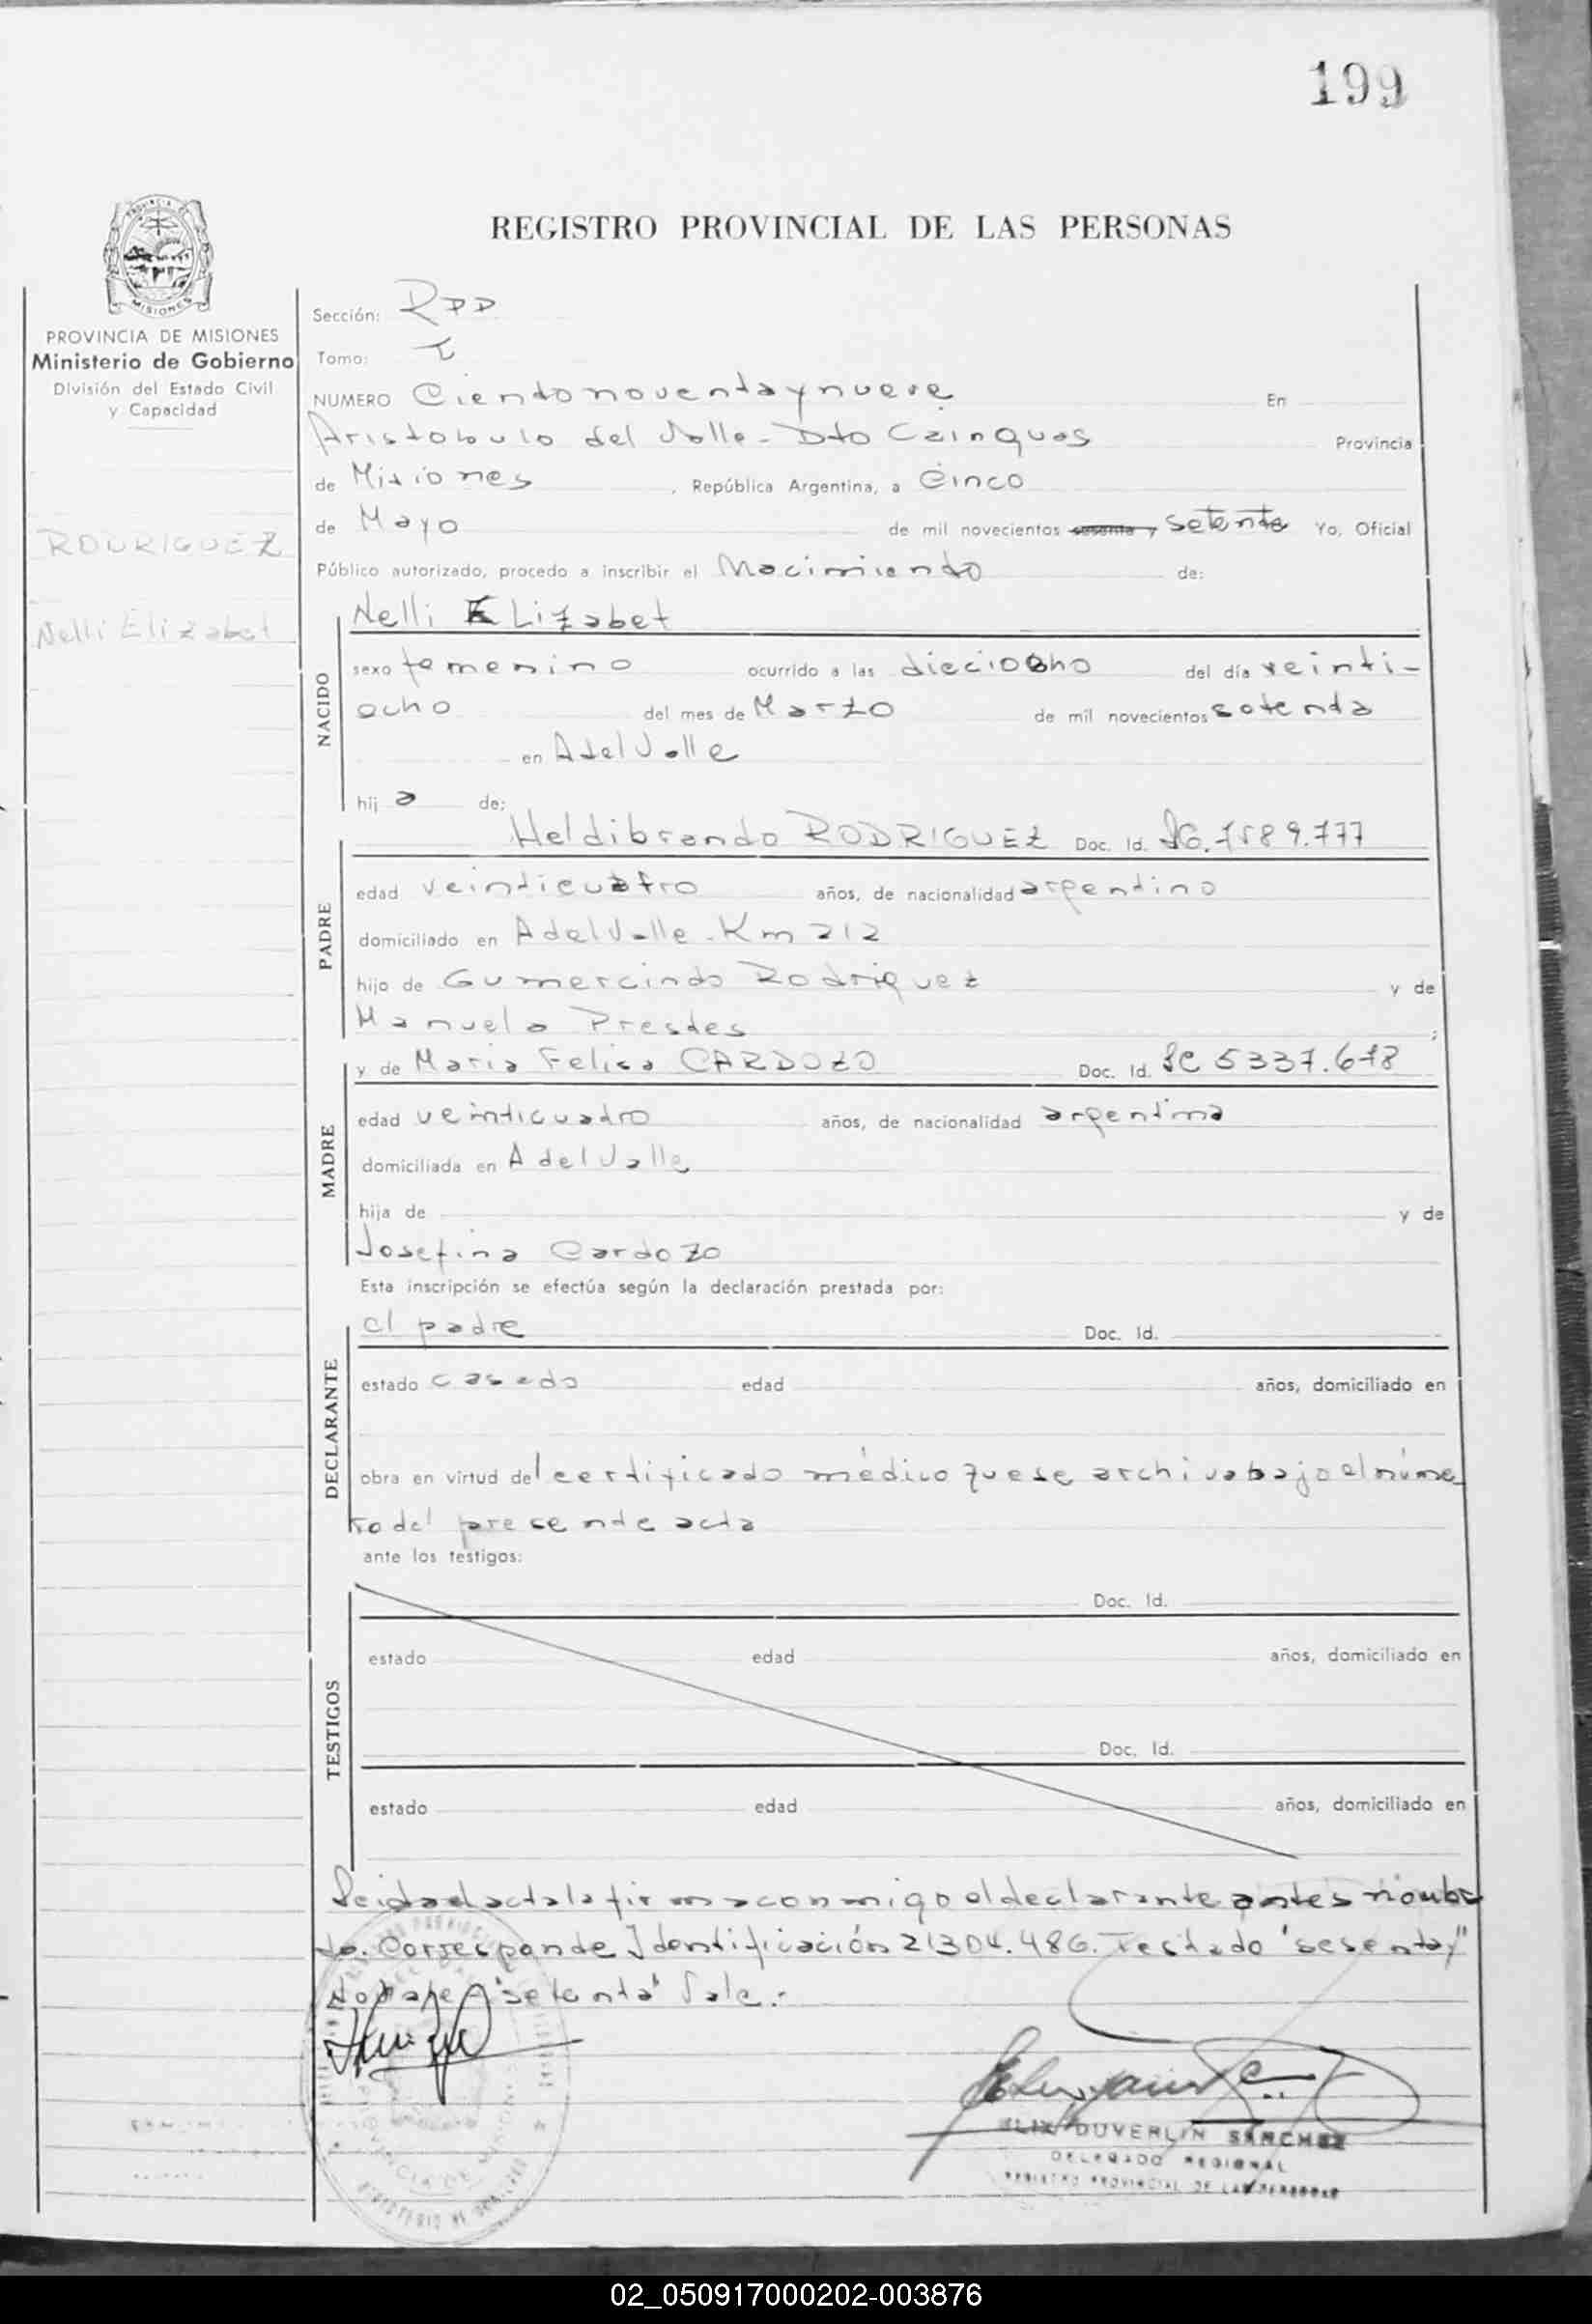 199
REGISTRO PROVINCIAL DE LAS PERSONAS
MISIONES
PROVINCIA DE MISIONES
Ministerio de Gobierno
División del Estado Civil
y Capacidad
RODRIGUEZ
Nelli Elizabet
Sección: RPP
Tomo: I
NUMERO Ciento noventa y nueve En
Aristobulo del Valle - Dto Cainguas Provincia
de Misiones, República Argentina, a Cinco
de Mayo de mil novecientos sesenta y setenta Yo, Oficial
Público autorizado, procedo a inscribir el Nacimiento de:
NACIDO
Nelli Elizabet
sexo femenino ocurrido a las dieciocho del día veinti-
ocho del mes de Marzo de mil novecientos setenta
en A del Valle
hij a de:
PADRE
Heldibrando RODRIGUEZ Doc. Id. 7589.777
edad veinticuatro años, de nacionalidad argentino
domiciliado en A del Valle - Km 212
hijo de Gumercindo Rodriguez y de
Manuela Prestes ;
MADRE
y de Maria Felisa CARDOZO Doc. Id. 5337.678
edad veinticuatro años, de nacionalidad argentina
domiciliada en A del Valle
hija de y de
Josefina Cardozo
Esta inscripción se efectúa según la declaración prestada por:
DECLARANTE
el padre Doc. Id.
estado casado edad años, domiciliado en
obra en virtud del certificado médico que se archiva bajo el núme
ro del presente acta
ante los testigos:
TESTIGOS
Doc. Id.
estado edad años, domiciliado en
Doc. Id.
estado edad años, domiciliado en
Leida el acta la firma conmigo el declarante antes nombra
do. Corresponde Identificación 21304.486. Testado "sesenta y"
No vale "setenta" Vale.-
DUVERLIN SANCHEZ
DELEGADO REGIONAL
REGISTRO PROVINCIAL DE LAS PERSONAS
PROVINCIA DE MISIONES
02_050917000202-003876